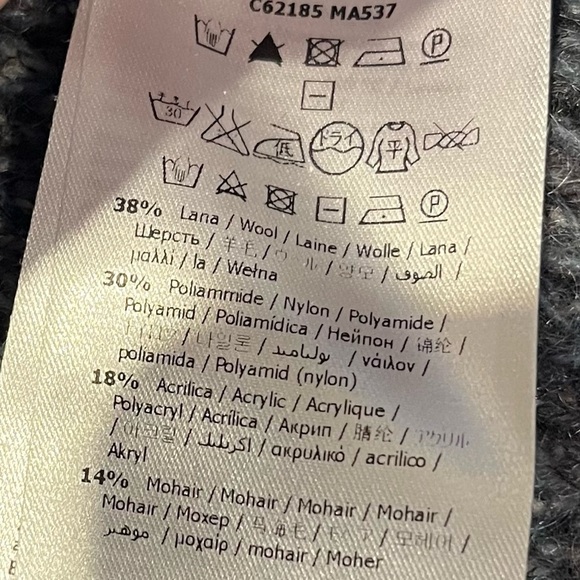 C62185 MA537
P
30
低 ドライ 平
P
38% Lana / Wool / Laine / Wolle / Lana /
Шерсть / 羊毛 / / 양모 / الصوف /
μαλλί / la / Wełna
30% Poliammide / Nylon / Polyamide /
Polyamid / Poliamídica / Нейлон / 锦纶 /
/ 나일론 / بوليامید / νάιλον /
poliamida / Polyamid (nylon)
18% Acrilica / Acrylic / Acrylique /
Polyacryl / Acrílica / Акрил / 腈纶 / アクリル
/ 아크릴 / اكريليك / ακρυλικό / acrilico /
Akryl
14% Mohair / Mohair / Mohair / Mohair /
Mohair / Мохер / 马海毛 / モヘア / 모헤어 /
موهير / μοχαίρ / mohair / Moher